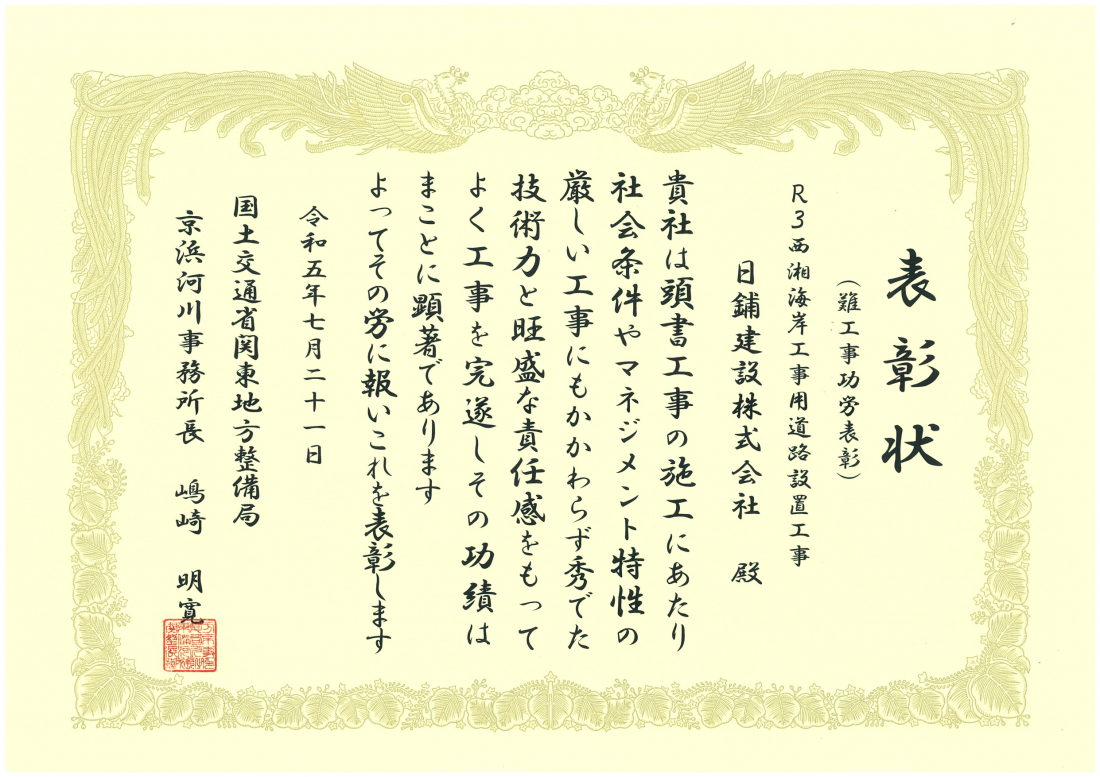 表彰状
(難工事功労表彰)
R3西湘海岸工事用道路設置工事
日鋪建設株式会社 殿
貴社は頭書工事の施工にあたり
社会条件やマネジメント特性の
厳しい工事にもかかわらず秀でた
技術力と旺盛な責任感をもって
よく工事を完遂しその功績は
まことに顕著であります
よってその労に報いこれを表彰します
令和五年七月二十一日
国土交通省関東地方整備局
京浜河川事務所長 嶋崎 明寛